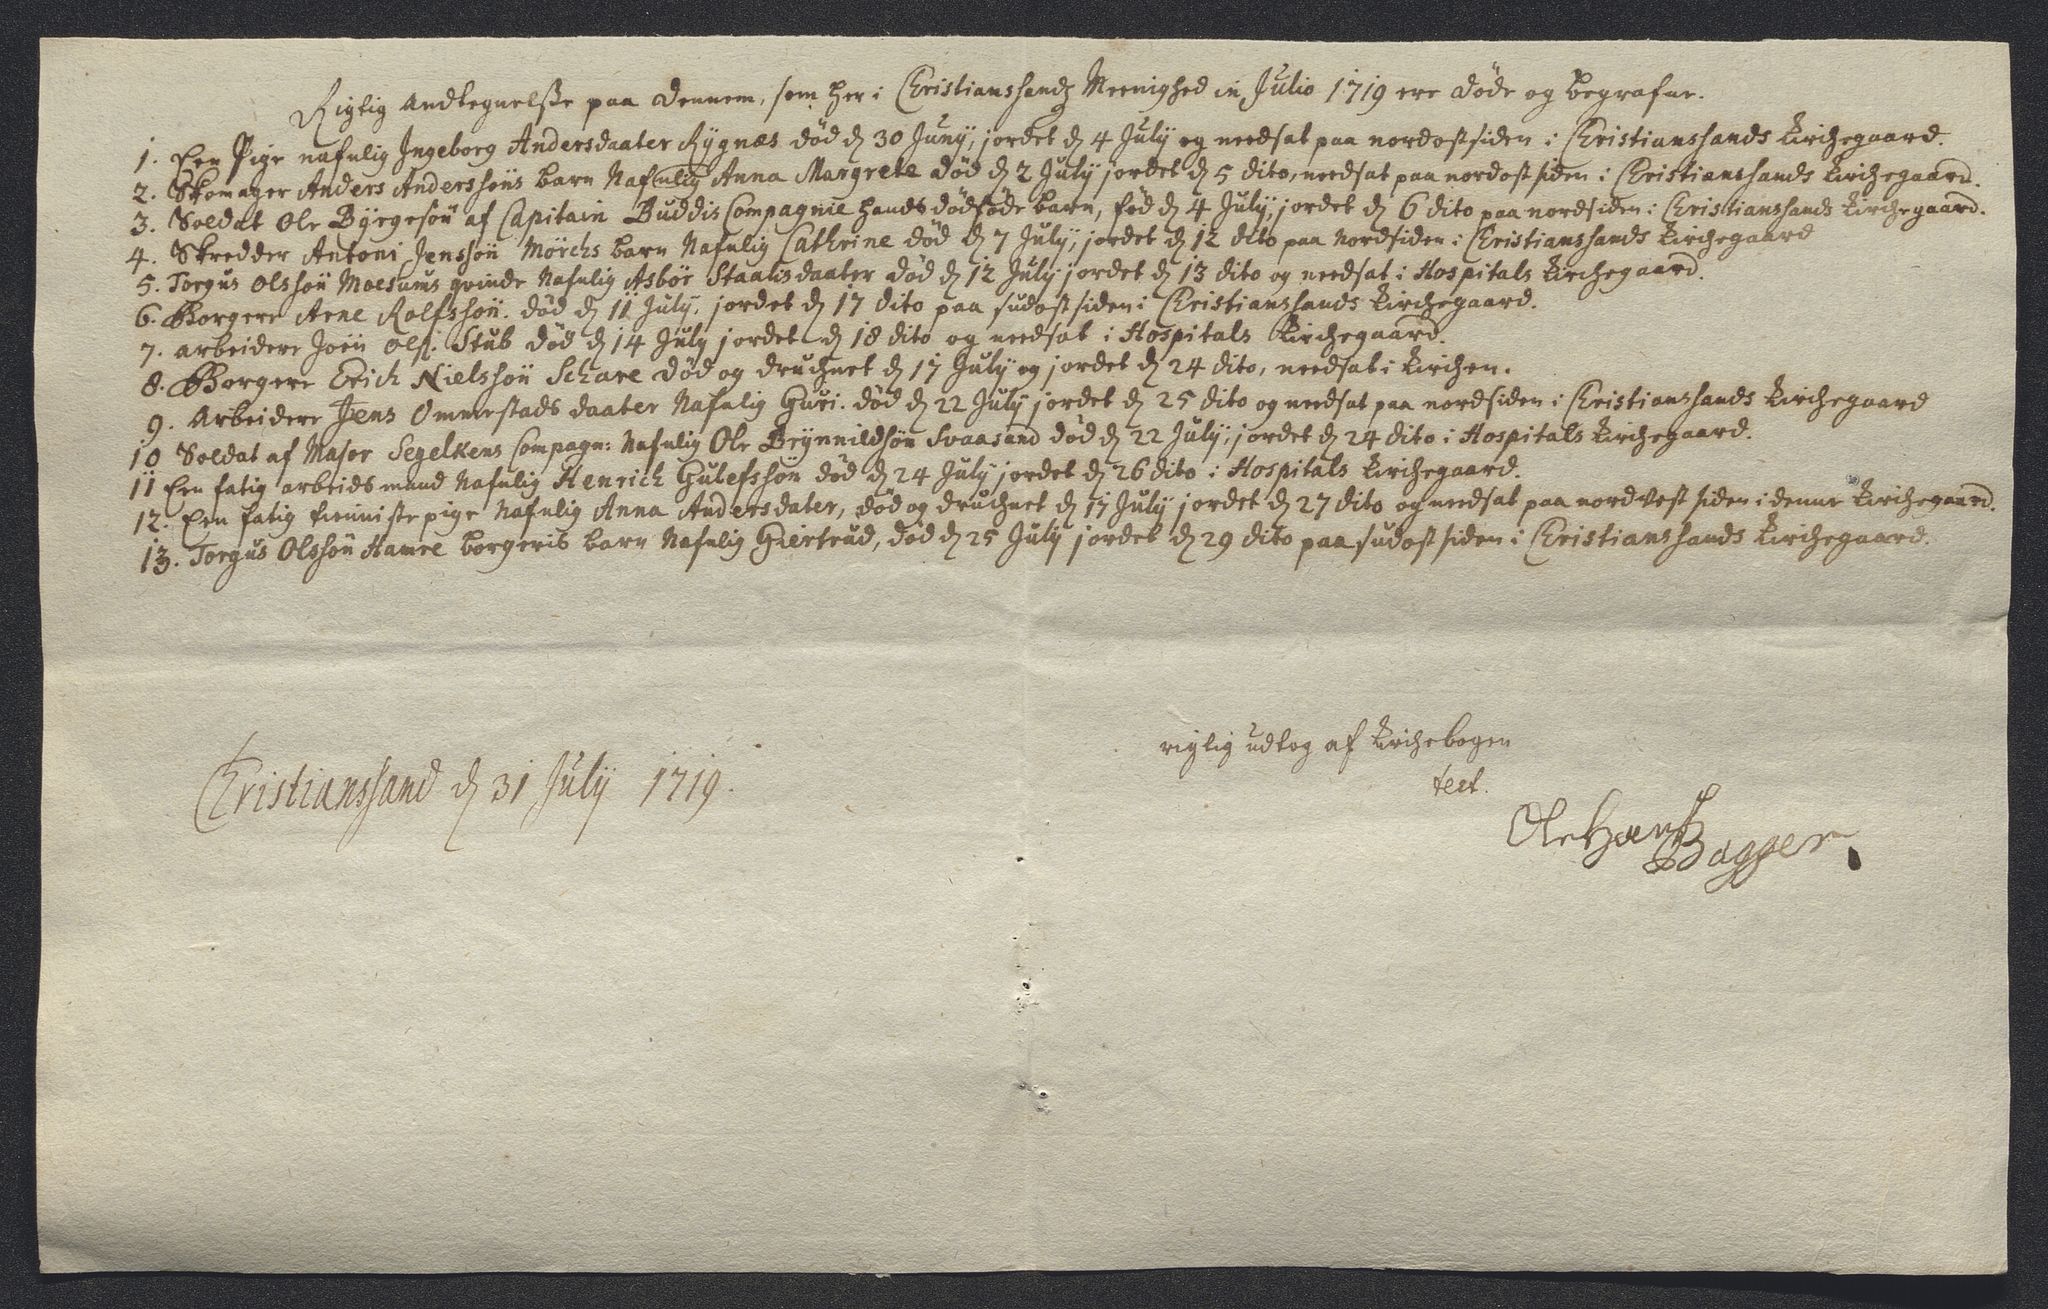 Rigtig andtegnelsße paa dennem, som her i Christianssandz Meenighed in Julio 1719 ere döde og begrafne.
1. Een Pige nafnlig Ingeborg Andersdaater Rygnæs död d 30 Junÿ, jordet d 4 July og needsat paa nordostsiden i Christianssands Kirchegaard.
2. Skomager Anders Anderssöns barn Nafnlig Anna Margrete död d 2 July jordet d 5 dito, needsat paa nordostsiden i Christianssands Kirchegaard.
3. Soldat Ole Byrgesön af Capitain Buddis Compagnie hands dödföde barn, föd d 4 July, jordet d 6 dito paa nordsiden i Christianssands Kirchegaard.
4. Skredder Antoni Jenssön Mörchs barn Nafnlig Cathrine död d 7 July, jordet d 12 dito paa Nordsiden i Christianssands Kirchegaard
5. Torgus Olssön Moesums qvinde Nafnlig Asbör Staalisdaater död d 12 July jordet d 13 dito og needsat i Hospitals Kirchegaard.
6. Borgere Arne Rolfssön. död d 11 July, jordet d 17 dito paa sudostsiden i Christianssands Kirchegaard.
7. arbeidere Joen Ols: Stub död d 14 July jordet d 18 dito og needsat i Hospitals Kirchegaard.
8. Borgere Erich Nielssön Schare död og druchnet d 17 July og jordet d 24 dito, needsat i Kirchen.
9. Arbeidere Jens Ommestads daater Nafnlig Guri. död d 22 July jordet d 25 dito og needsat paa nordsiden i Christianssands Kirchegaard
10 Soldat af Major Segelkens Compagn: Nafnlig Ole Brÿnnildsön Svaasand död d 22 July, jordet d 24 dito i Hospitals Kirchegaard.
11 Een fatig arbeidsmand Nafnlig Henrich Gulefssön död d 24 July jordet d 26 dito i Hospitals Kirchegaard.
12. Een fatig tieniste pige Nafnlig Anna Andersdater, död og druchnet d 17 July jordet d 27 dito og needsat paa nordvest siden i denne Kirchegaard.
13. Torgus Olssön Hamre borgeris barn Nafnlig Giertrud, död d 25 July jordet d 29 dito paa sudostsiden i Christianssands Kirchegaard.
rigtig udtog af Kirchebogen
test.
Christianssand d 31 Julÿ 1719.
Ole Hans: Bagger